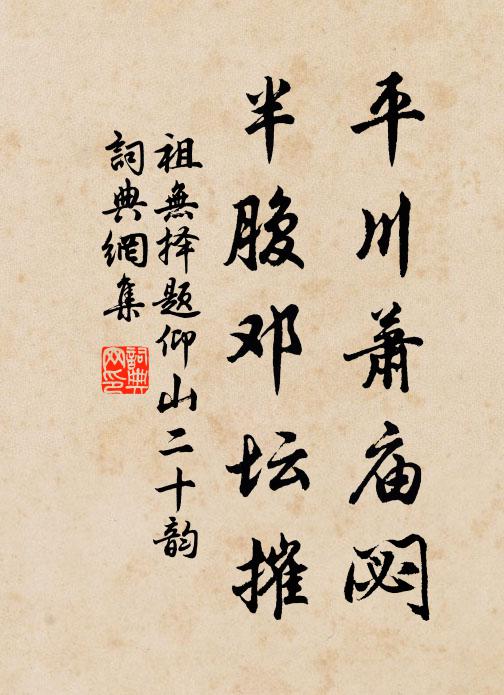 平川萧庙閟
半腹邓坛摧
祖無择题仰山二十韵
詞典網集
詞典網印